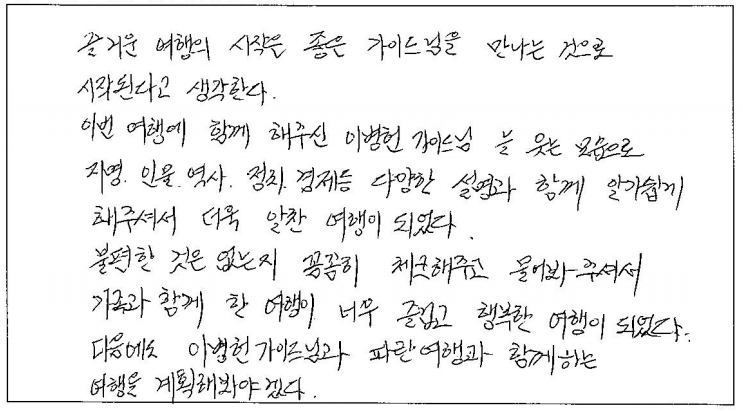 즐거운 여행의 시작은 좋은 가이드님을 만나는 것으로
시작된다고 생각한다.
이번 여행에 함께 해주신 이병헌 가이드님 늘 웃는 모습으로
지명. 인물. 역사. 정치. 경제등 다양한 설명과 함께 알기쉽게
해주셔서 더욱 알찬 여행이 되었다.
불편한 것은 없는지 꼼꼼히 체크해주고 물어봐주셔서
가족과 함께 한 여행이 너무 즐겁고 행복한 여행이 되었다.
다음에도 이병헌 가이드님과 파란여행과 함께하는
여행을 계획해봐야겠다.